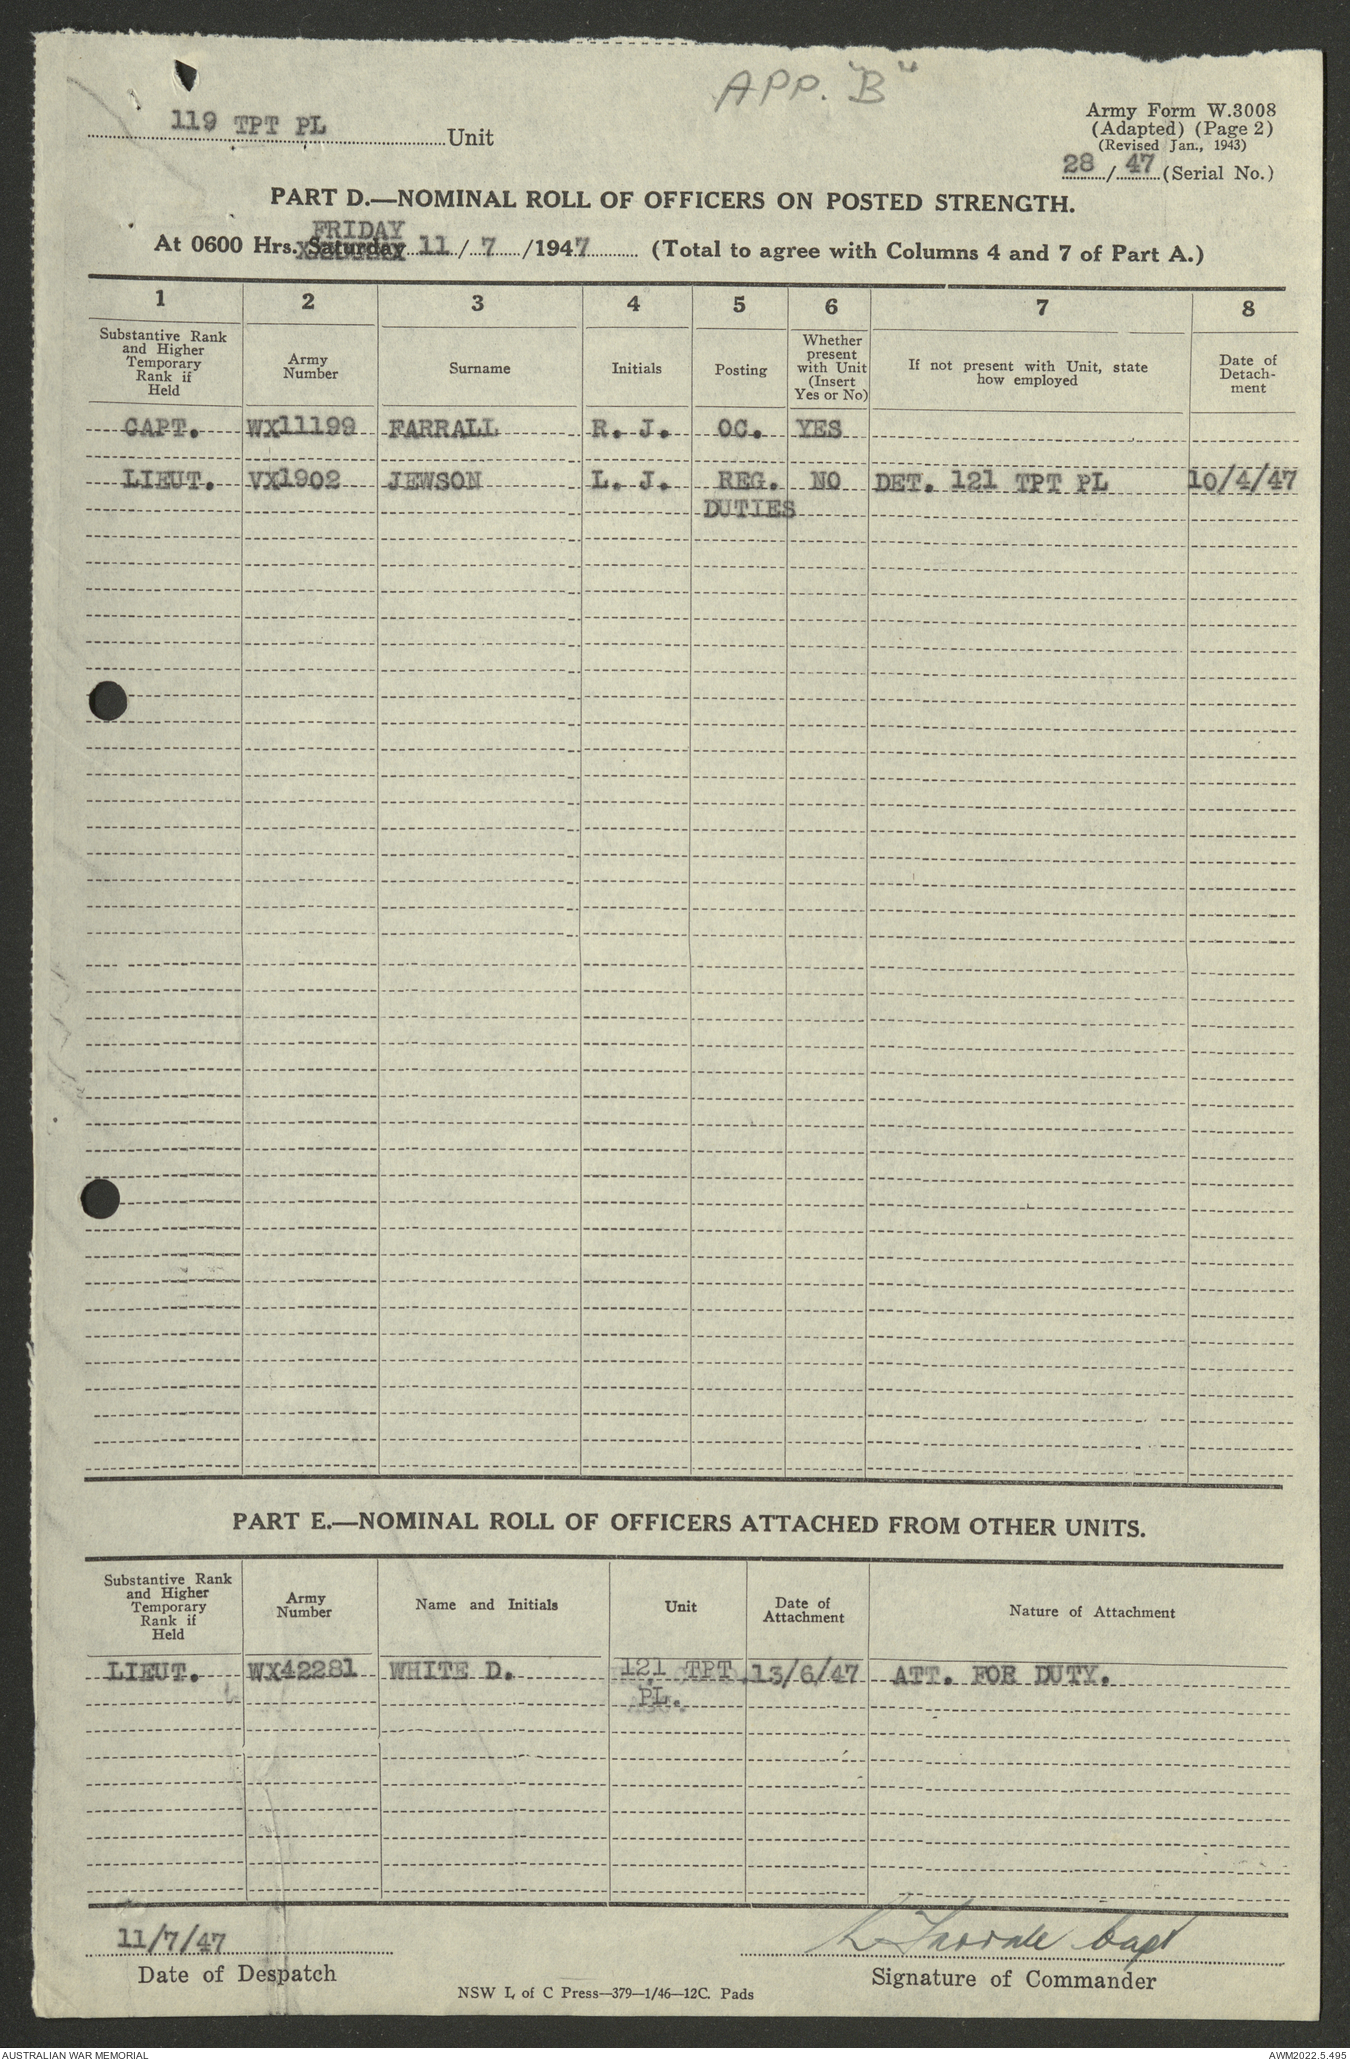 APP. "B"
119 TPT PL Unit
Army Form W.3008
(Adapted) (Page 2)
(Revised Jan., 1943)
28 / 47 (Serial No.)
PART D.—NOMINAL ROLL OF OFFICERS ON POSTED STRENGTH.
FRIDAY
At 0600 Hrs. Saturday 11 / 7 /1947 (Total to agree with Columns 4 and 7 of Part A.)
1 2 3 4 5 6 7 8
Substantive Rank and Higher Temporary Rank if Held
Army Number
Surname
Initials
Posting
Whether present with Unit (Insert Yes or No)
If not present with Unit, state how employed
Date of Detach-ment
CAPT. WX11199 FARRALL R. J. OC. YES
LIEUT. VX1902 JEWSON L. J. REG. NO DET. 121 TPT PL 10/4/47
DUTIES
PART E.—NOMINAL ROLL OF OFFICERS ATTACHED FROM OTHER UNITS.
Substantive Rank and Higher Temporary Rank if Held
Army Number
Name and Initials
Unit
Date of Attachment
Nature of Attachment
LIEUT. WX42281 WHITE D. 121 TPT 13/6/47 ATT. FOR DUTY.
PL.
11/7/47
Capt
Date of Despatch
Signature of Commander
NSW L of C Press—379—1/46—12C. Pads
AUSTRALIAN WAR MEMORIAL
AWM2022.5.495